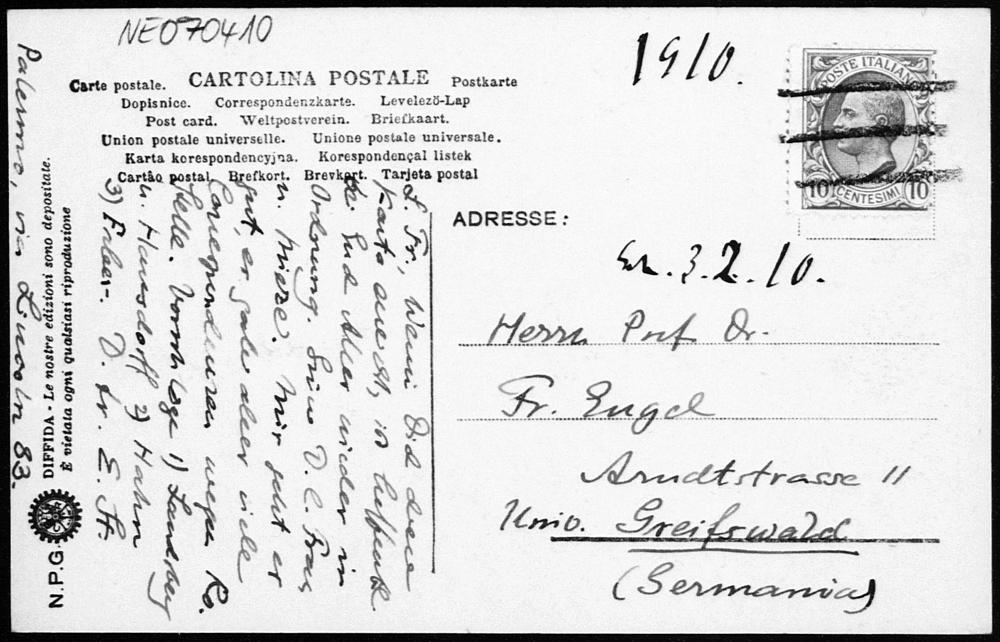 NE070410
1910.
Carte postale. CARTOLINA POSTALE Postkarte
Dopisnice. Correspondenzkarte. Levelező-Lap
Post card. Weltpostverein. Briefkaart.
Union postale universelle. Unione postale universale.
Karta korespondencyjna. Korespondençal listek
Cartão postal. Brefkort. Brevkort. Tarjeta postal
POSTE ITALIANE
10 CENTESIMI 10
ADRESSE:
3.2.10.
Herrn Prof Dr.
Fr. Engel
Arndtstrasse 11
Univ. Greifswald
(Germania)
L. Fr., Wenn Did diese
Karte
sind Aber wieder in
Ordnung. Deine D. l. Frau
u. Mieze. Mir geht es
gut, es gab aber viele
Correspondenzen wegen Ro.
Stelle. Vorschlag 1) Landsberg
u. Hausdorff 2) Hahn
3) Faber. D. tr. E. St.
Palermo, via Lincoln 83.
DIFFIDA - Le nostre edizioni sono depositate.
È vietata ogni qualsiasi riproduzione
N.P.G.